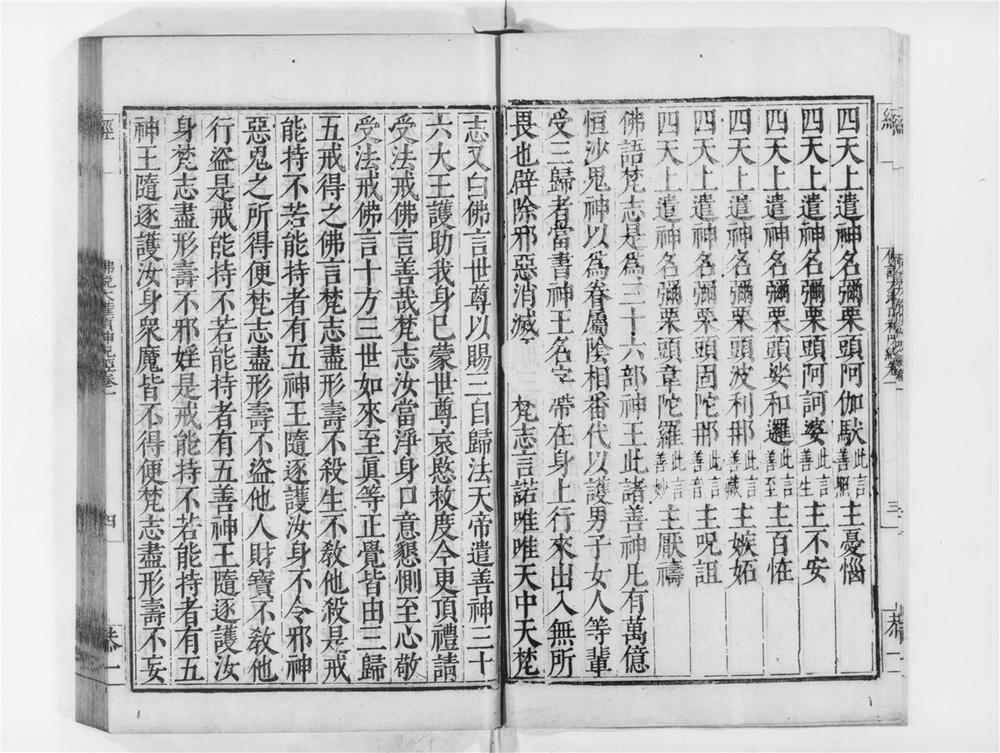 四天上遣神名彌栗頭阿伽馱此言善照主憂惱
四天上遣神名彌栗頭阿訶婆此言善生主不安
四天上遣神名彌栗頭娑和邏此言善至主百怪
四天上遣神名彌栗頭波利那此言善藏主嫉妬
四天上遣神名彌栗頭固陀那此言善音主呪詛
四天上遣神名彌栗頭韋陀羅此言善妙主厭禱
佛語梵志是為三十六部神王此諸善神凡有萬億
恒沙鬼神以為眷屬陰相番代以護男子女人等輩
受三歸者當書神王名字帶在身上行來出入無所
畏也辟除邪惡消滅 梵志言諾唯唯天中天梵
志又白佛言世尊以賜三自歸法天帝遣善神三十
六大王護助我身已蒙世尊哀愍救度今更頂禮請
受法戒佛言善哉梵志汝當淨身口意懇惻至心敬
受法戒佛言十方三世如來至真等正覺皆由三歸
五戒得之佛言梵志盡形壽不殺生不教他殺是戒
能持不若能持者有五神王隨逐護汝身不令邪神
惡鬼之所得便梵志盡形壽不盜他人財寶不教他
行盜是戒能持不若能持者有五善神王隨逐護汝
身梵志盡形壽不邪婬是戒能持不若能持者有五
神王隨逐護汝身眾魔皆不得便梵志盡形壽不妄
經
四
恭一
三
恭一